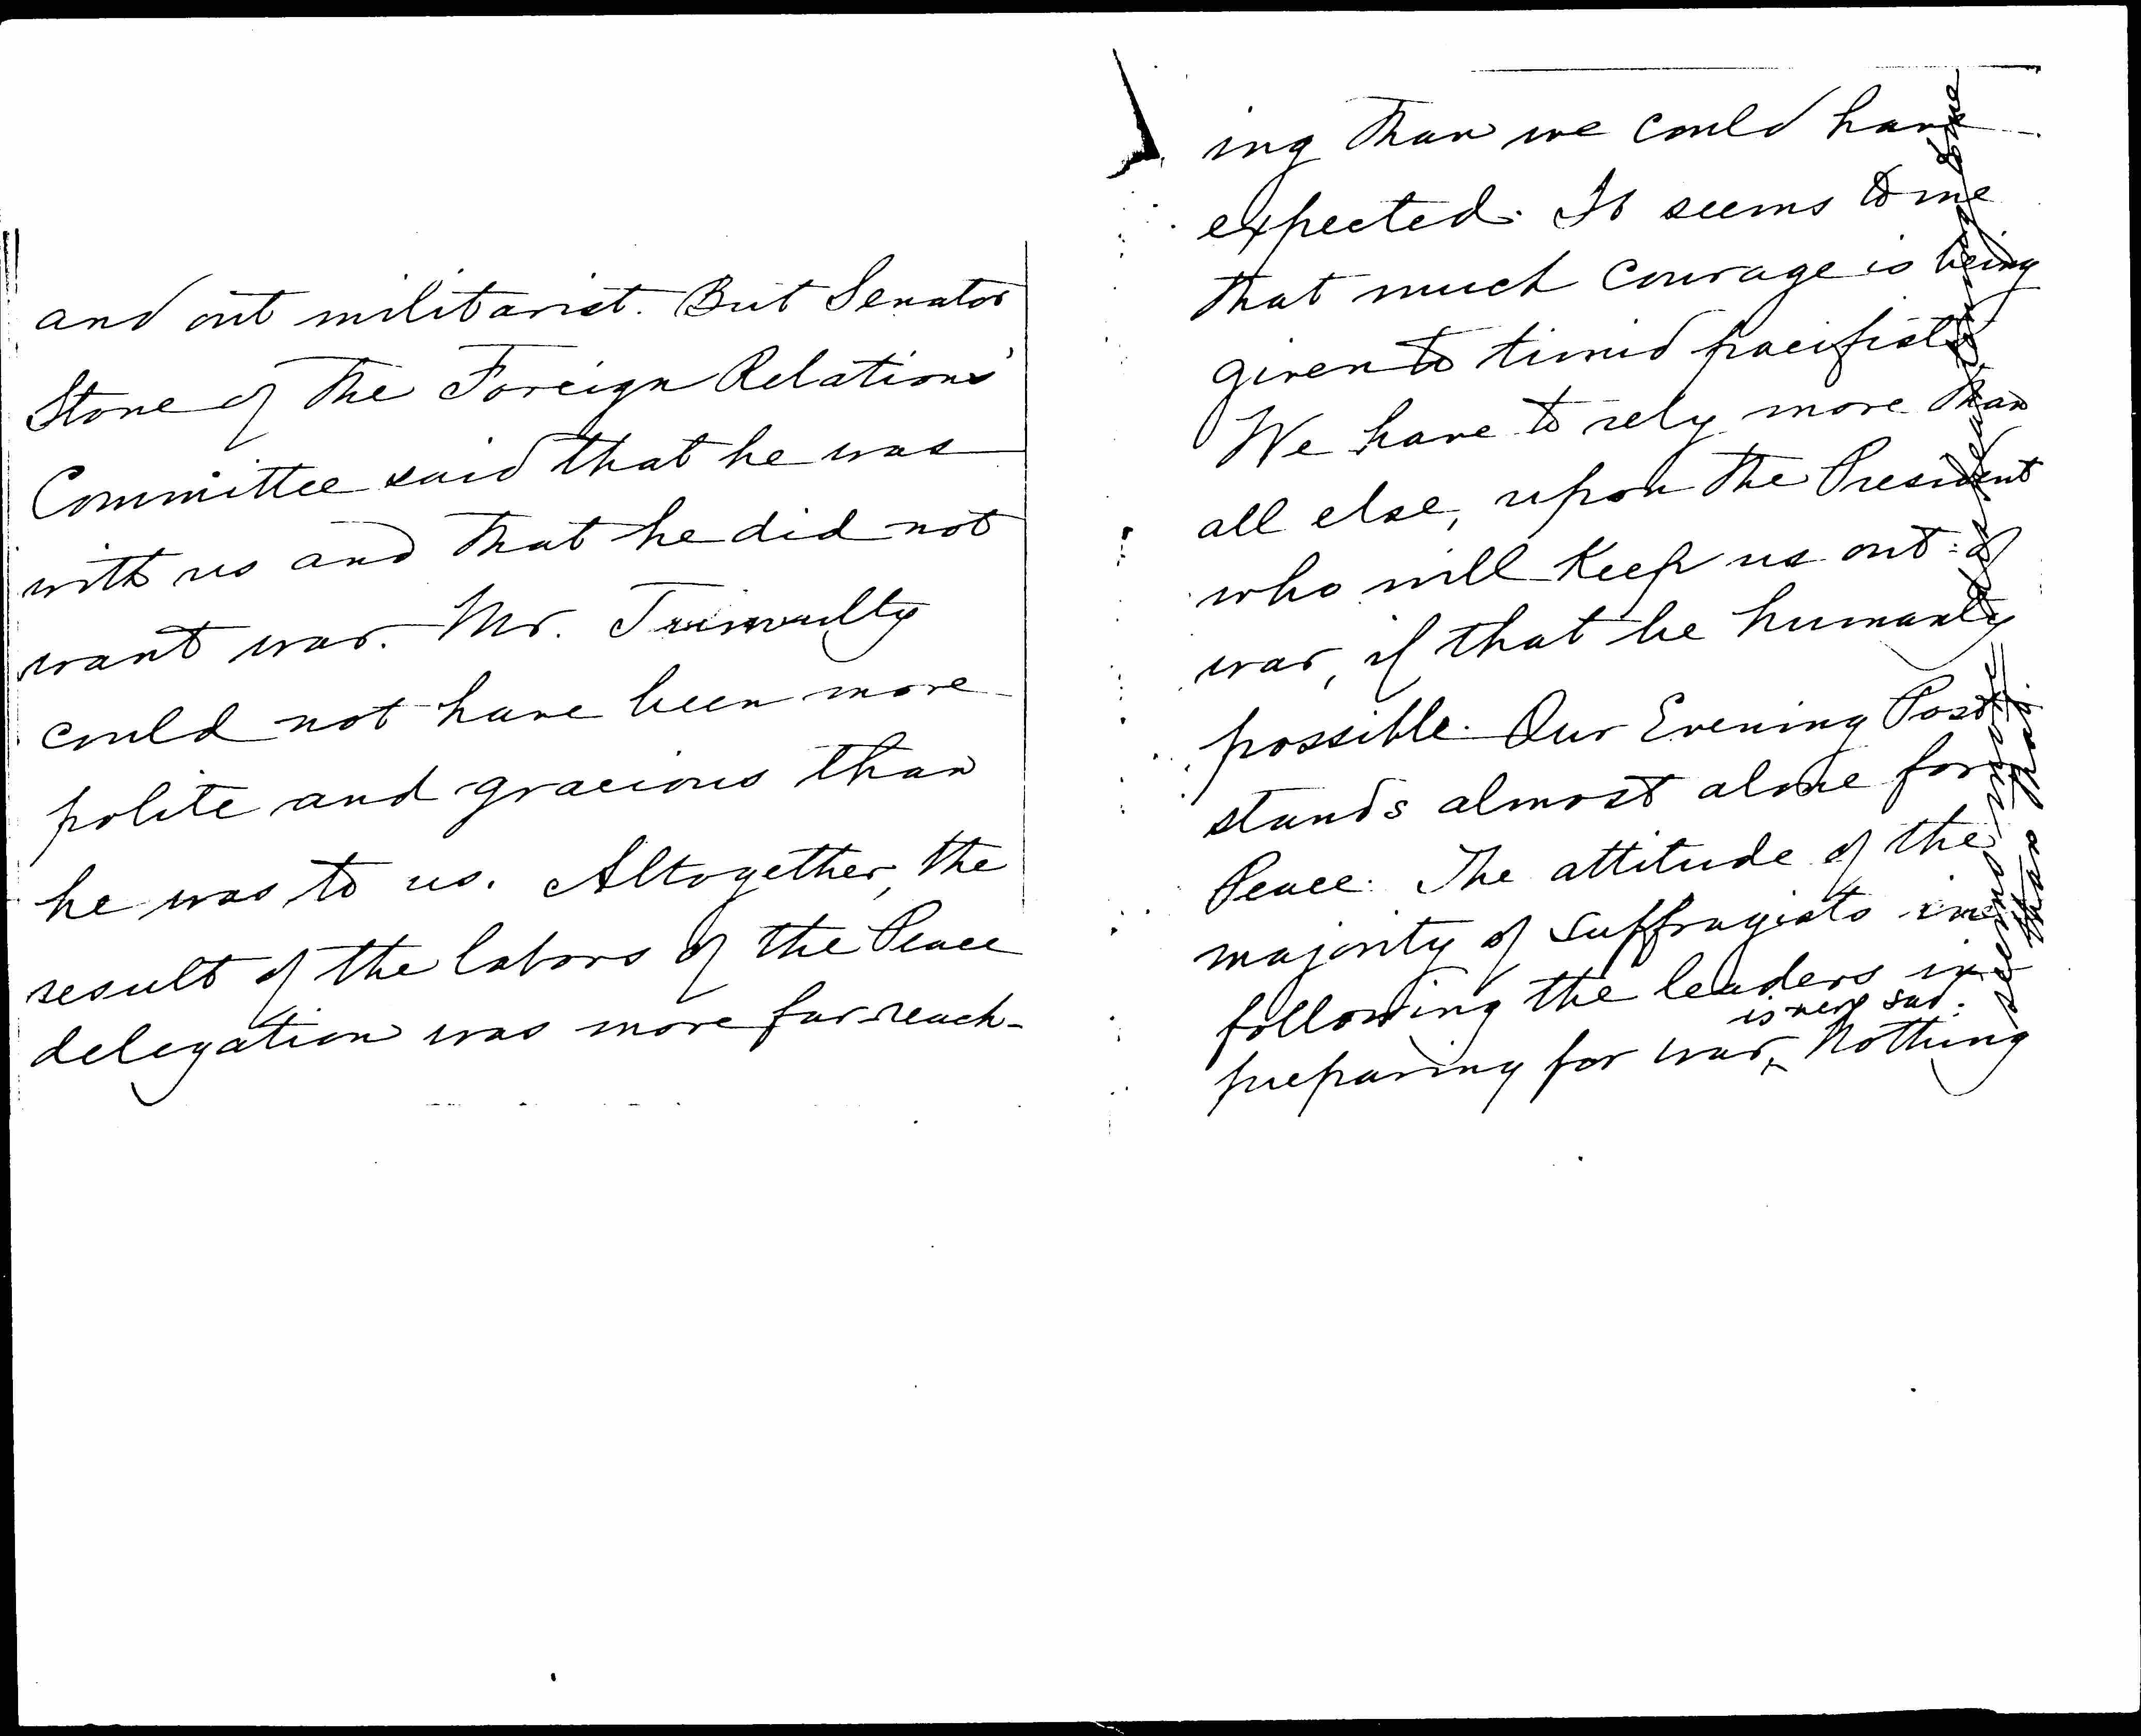 and out militarist. But Senator
Stone of the Foreign Relations'
Committee said that he was
with us and that he did not
want war. Mr. Tumulty
could not have been more
polite and gracious than
he was to us. Altogether, the
result of the labors of the Peace
delegation was more far-reach-
ing than we could have
expected. It seems to me
that much courage is being
given to timid pacifists
We have to rely more than
all else, upon the President
who will keep us out of
war, if that be humanly
possible. Our Evening Post
stands almost alone for
Peace. The attitude of the
majority of suffragists in
following the leaders in
preparing for war, is very sad. Nothing
seems more disheartening to me
than that.